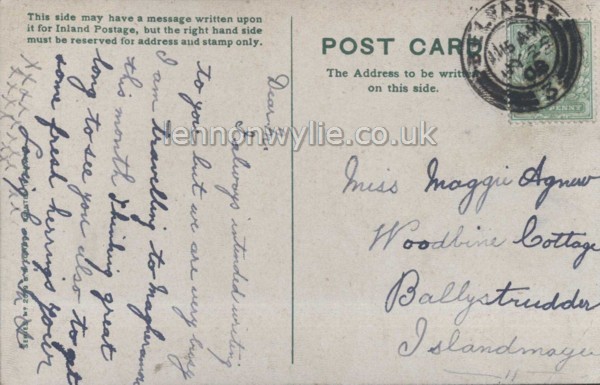 This side may have a message written upon
it for Inland Postage, but the right hand side
must be reserved for address and stamp only.
Dear
I always intended writing
to you but we are very busy
I am travelling to Magheramorne
this month thinking great
long to see you also to get
some fresh herrings your
loving
xxxxxxxxx
POST CARD
The Address to be written
on this side.
BELFAST
05
Miss Maggie Agnew
Woodbine Cottage
Ballystrudder
Islandmagee
lennonwylie.co.uk